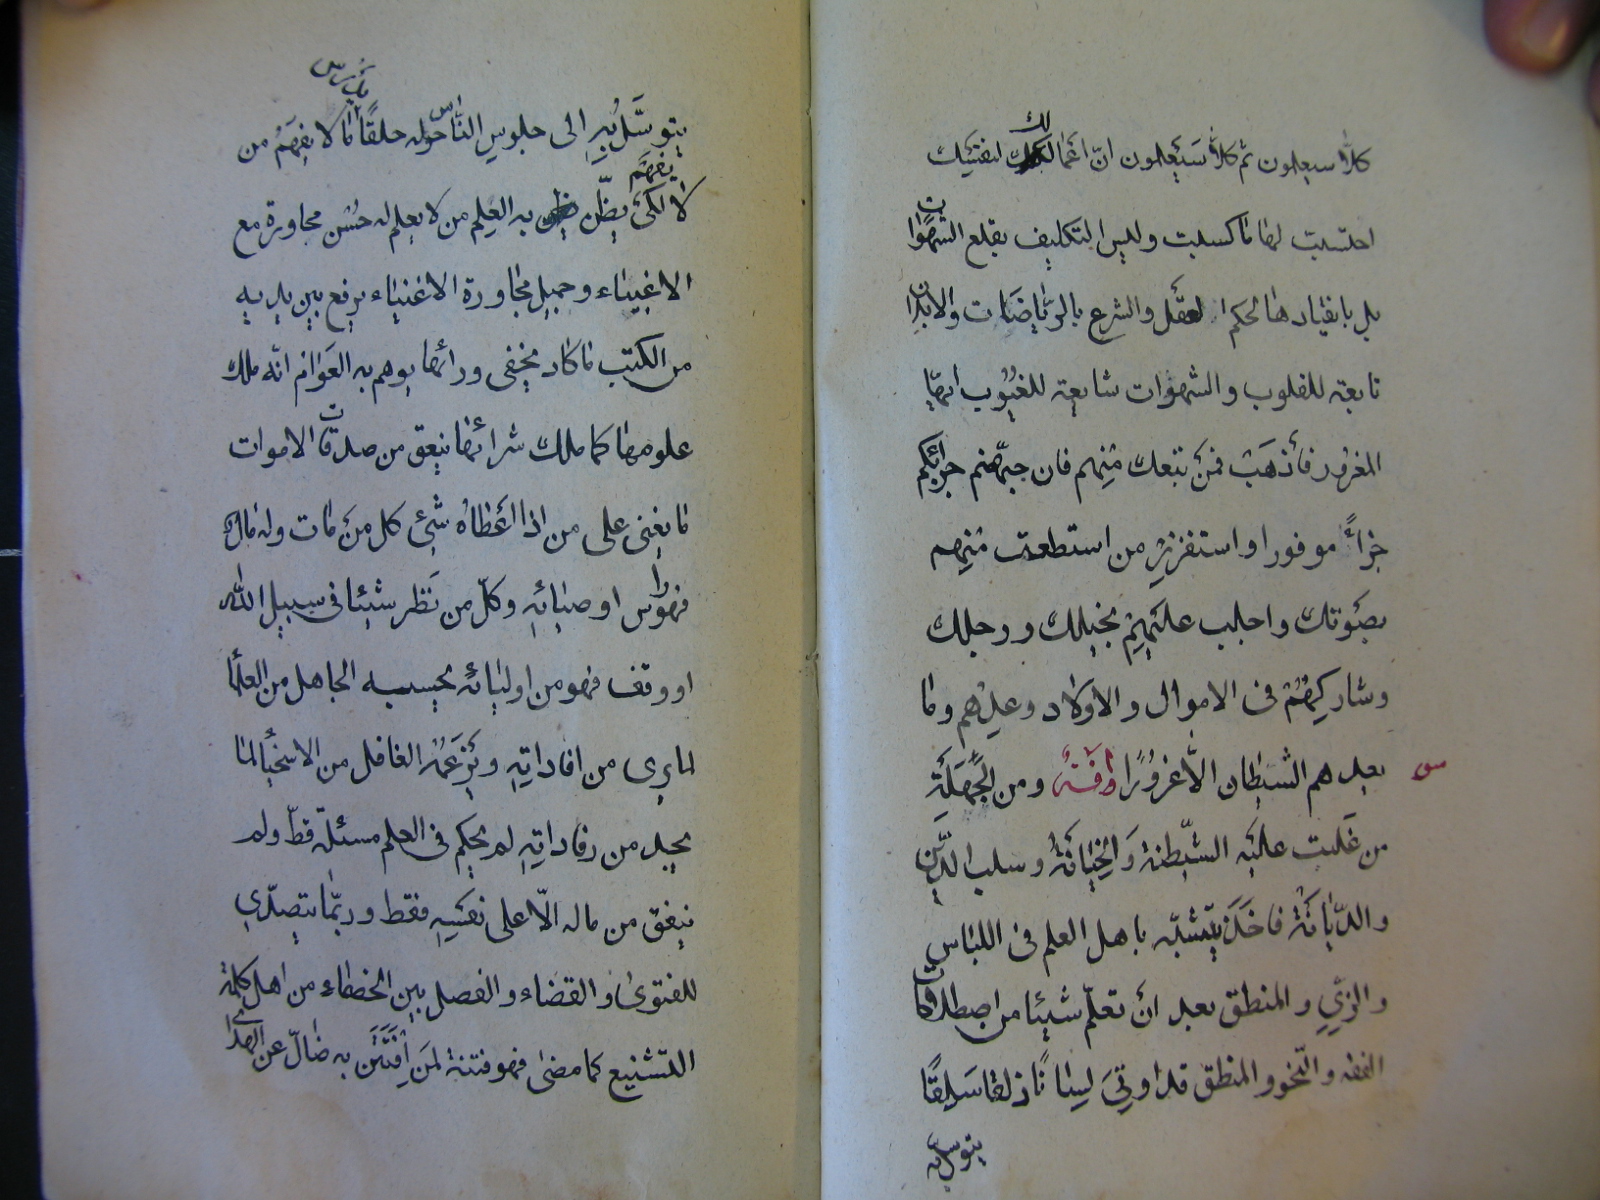 كلا سيعلمون ثم كلا سيعلمون ان اعمالك لنفسك
احتسبت لها ما كسبت وليس التكليف بقلع الشهوات
بل بانقيادها لحكم العقل والشرع بالرياضات والابدان
تابعة للقلوب والشهوات شايعة للغيوب ايها
المغرور فأذهب فمن تبعك منهم فان جهنم جزائكم
جزاءً موفورا واستفزز من استطعت منهم
بصوتك واجلب عليهم بخيلك ورجلك
وشاركهم فى الاموال والاولاد وعدهم وما
يعدهم الشيطان الّا غرورًا وافة ومن الجهلة
من غلبت عليه الشيطنة والخيانة وسلب الدين
والديانة فاخذ يتشبّه باهل العلم فى اللباس
والزيّ والمنطق بعد ان تعلّم شيئا من اصطلاحات
الفقه والنحو والمنطق قد اوتى لسانًا ذلقا سليقًا
يتوسل به
يتوسّل به الى جلوس الناس حوله حلقًا ما لا يفهم من
لا لكى يظن به العلم من لا يعلم له حسن محاورة مع
الاغبياء وجميل مجاورة الاغنياء يرفع بين يديه
من الكتب ما كاد يخفى ورائها يوهم به العوام انّه ملك
علومها كما ملك شرائها ينعق من صدقات الاموات
ما يغنى على من اذا اعطاه شئ كل من مات وله مال
فهو اوصيائه وكلّ من نذر شيئا فى سبيل الله
او وقف فهو من اوليائه يحسبه الجاهل من العلما
لما يرى من افاداته ويزعمه الغافل من الاسخيا لما
يجد من رفاداته لم يحكم فى العلم مسئلة قطّ ولم
ينفق من ماله الّا على نفسه فقط وربّما يتصدّى
للفتوى والقضاء والفصل بين الخطاء من اهل كلمة
التشنيع كما مضى فهو فتنة لمن افتتن به ضالّ عن الهدى